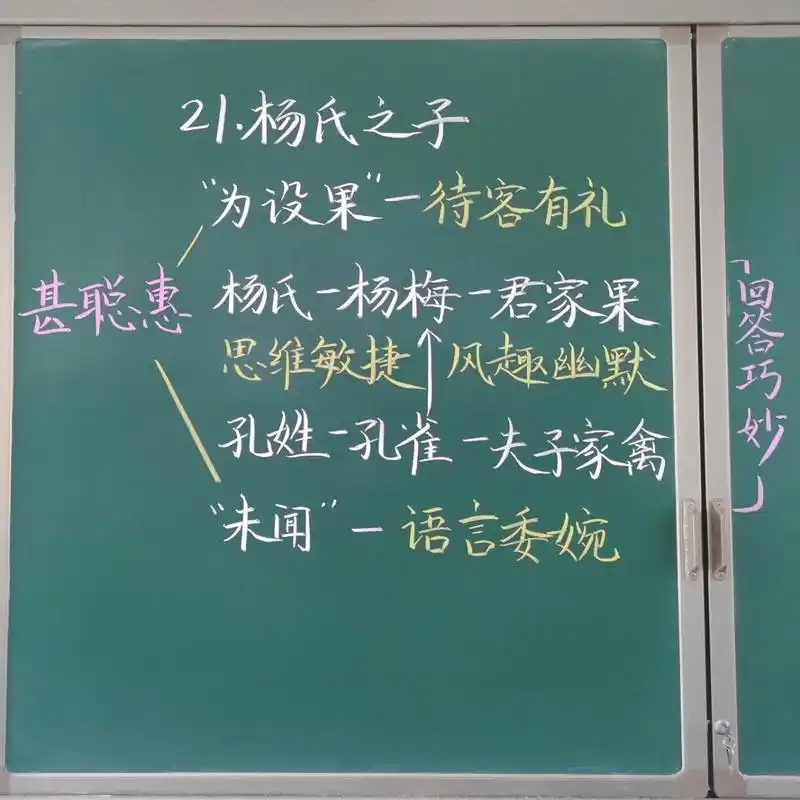 21.杨氏之子
"为设果"—待客有礼
甚聪惠
杨氏—杨梅—君家果
思维敏捷 风趣幽默
孔姓—孔雀—夫子家禽
"未闻"—语言委婉
「回答巧妙」